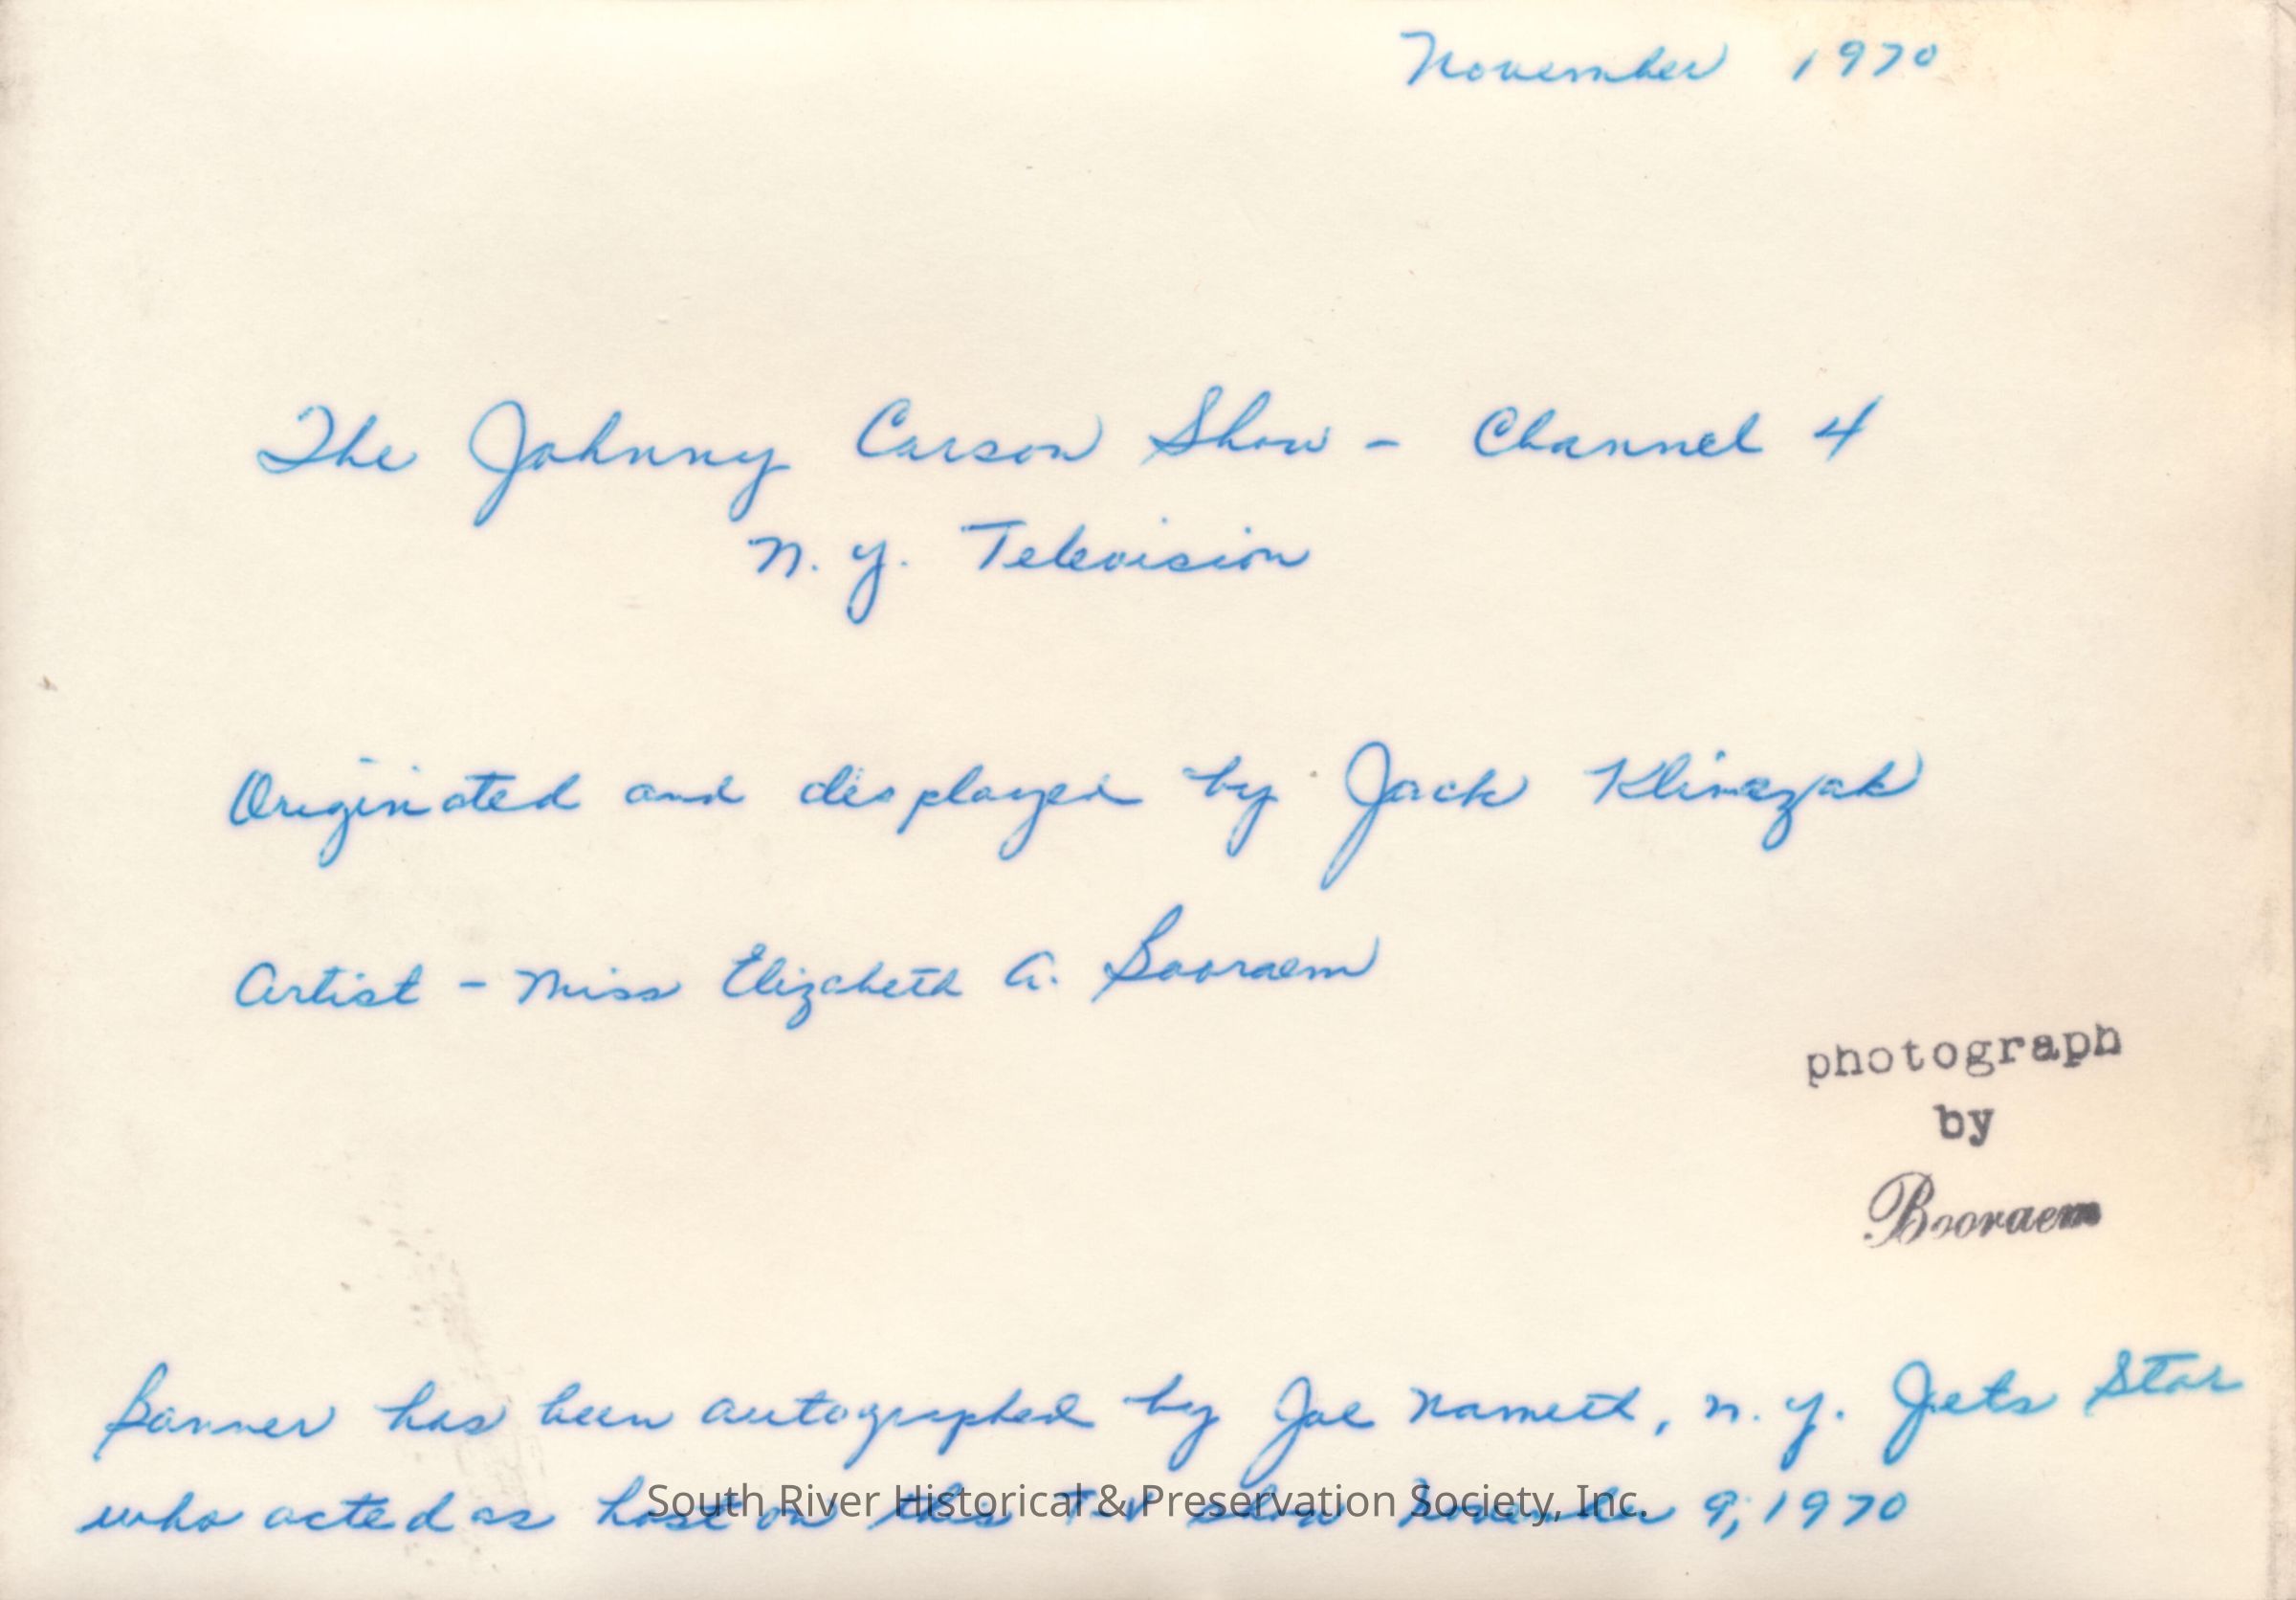 November 1970
The Johnny Carson Show - Channel 4
N. Y. Television
Originated and displayed by Jack Klimczak
Artist - Miss Elizabeth A. Booraem
photograph
by
Booraem
Banner has been autographed by Joe Nameth, N. Y. Jets Star
who acted as host on this T-V show November 9, 1970
South River Historical & Preservation Society, Inc.